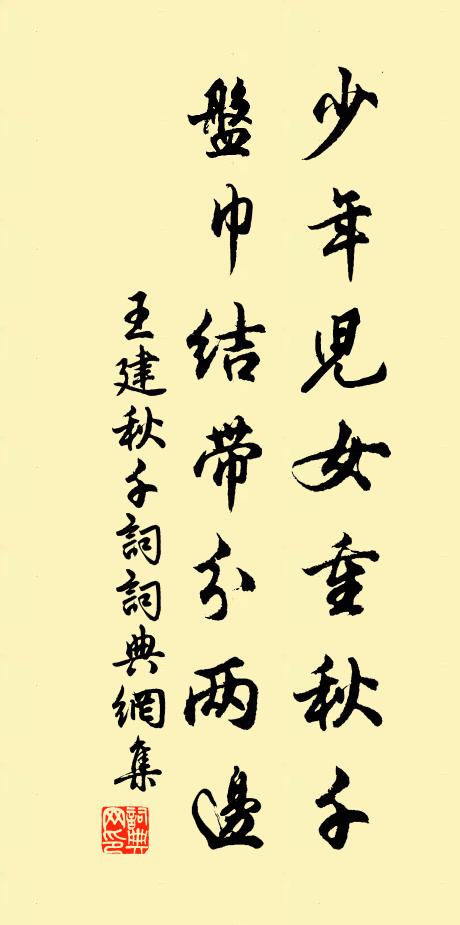 少年児女重秋千
盤巾结带分两邊
王建秋千詞詞典網集
詞典网印